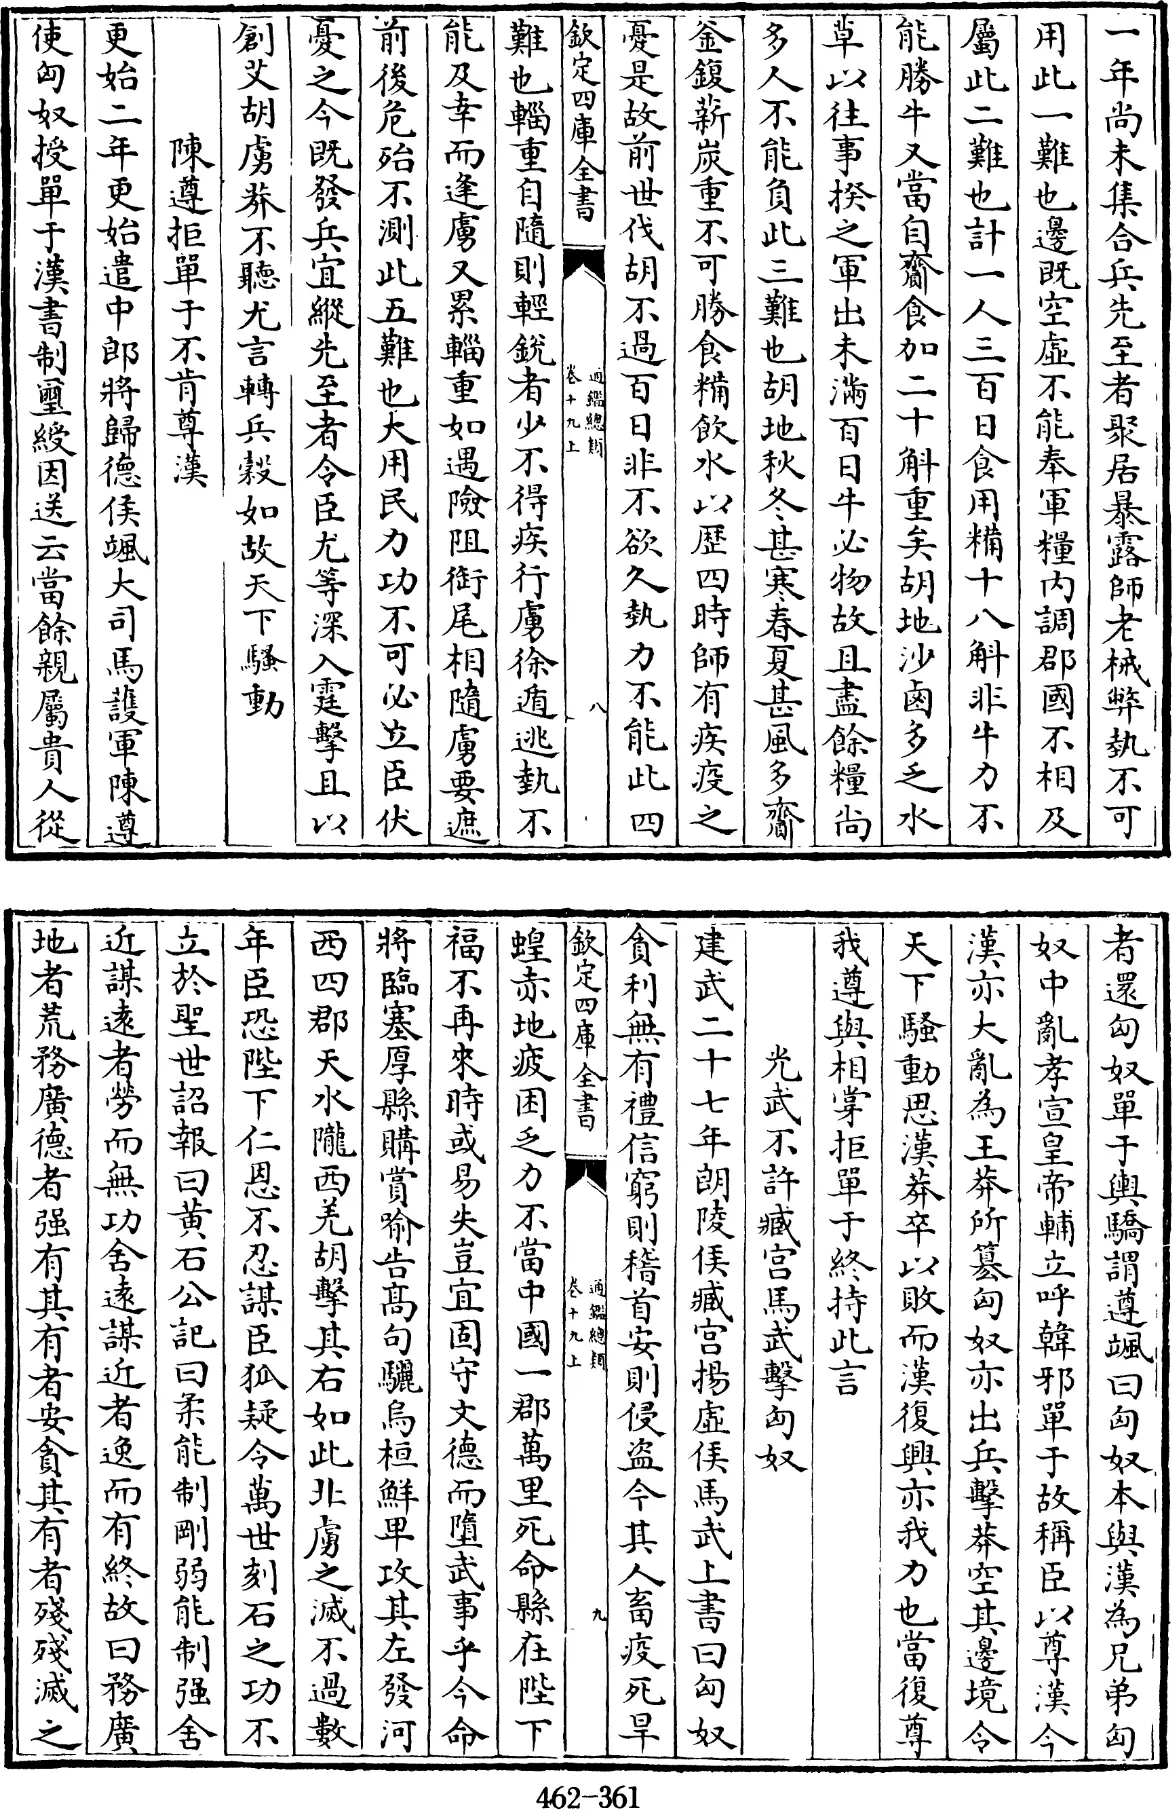 一年尚未集合兵先至者聚居暴露師老械弊埶不可
用此一難也邊既空虛不能奉軍糧内調郡國不相及
屬此二難也計一人三百日食用糒十八斛非牛力不
能勝牛又當自齎食加二十斛重矣胡地沙鹵多乏水
草以往事揆之軍出未滿百日牛必物故且盡餘糧尚
多人不能負此三難也胡地秋冬甚寒春夏甚風多齎
釜鍑薪炭重不可勝食糒飲水以歴四時師有疾疫之
憂是故前世伐胡不過百日非不欲久埶力不能此四
欽定四庫全書 通鑑總類 卷十九上 八
難也輜重自隨則輕鋭者少不得疾行虜徐遁逃埶不
能及幸而逢虜又累輜重如遇險阻銜尾相隨虜要遮
前後危殆不測此五難也大用民力功不可必立臣伏
憂之今既發兵宜縱先至者令臣尤等深入霆擊且以
創艾胡虜莽不聽尤言轉兵穀如故天下騷動
陳遵拒單于不肯尊漢
更始二年更始遣中郎將歸德侯颯大司馬護軍陳遵
使匈奴授單于漢書制璽綬因送云當餘親屬貴人從
者還匈奴單于輿驕謂遵颯曰匈奴本與漢為兄弟匈
奴中亂孝宣皇帝輔立呼韓邪單于故稱臣以尊漢今
漢亦大亂為王莽所簒匈奴亦出兵擊莽空其邊境令
天下騷動思漢莽卒以敗而漢復興亦我力也當復尊
我遵與相牚拒單于終持此言
光武不許臧宫馬武擊匈奴
建武二十七年朗陵侯臧宫揚虛侯馬武上書曰匈奴
貪利無有禮信窮則稽首安則侵盗今其人畜疫死旱
欽定四庫全書 通鑑總類 卷十九上 九
蝗赤地疲困乏力不當中國一郡萬里死命縣在陛下
福不再來時或易失豈宜固守文德而墮武事乎今命
將臨塞厚縣購賞喻告髙句驪烏桓鮮卑攻其左發河
西四郡天水隴西羌胡擊其右如此北虜之滅不過數
年臣恐陛下仁恩不忍謀臣狐疑令萬世刻石之功不
立於聖世詔報曰黄石公記曰柔能制剛弱能制强舍
近謀逺者勞而無功舍逺謀近者逸而有終故曰務廣
地者荒務廣德者强有其有者安貪其有者殘殘滅之
462-361